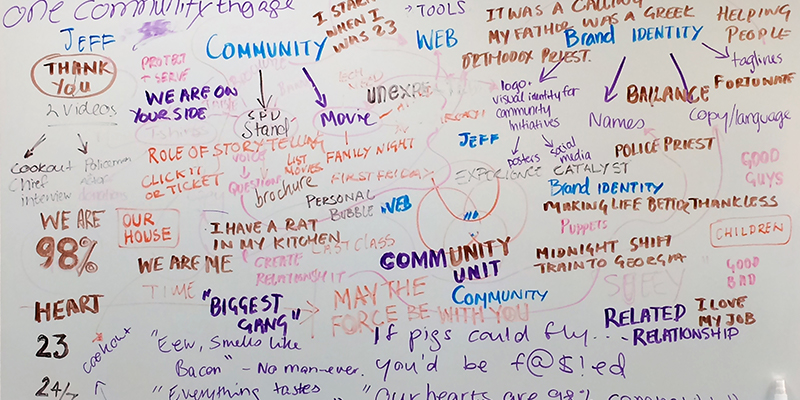 one Community Engage
I START
WHEN I
WAS 23
TOOLS
IT WAS A CALLING
MY FATHER WAS A GREEK
ORTHODOX PRIEST.
HELPING
PEOPLE
JEFF
COMMUNITY
WEB
Brand IDENTITY
taglines
THANK
YOU
PROTECT
+ SERVE
2 Videos
WE ARE ON
YOUR SIDE
SPD
Stand
Movie
logo.
visual identity for
community
Initiatives
BALLANCE
FORTUNATE
Names
Copy/language
posters
social
media
JEFF
POLICE PRIEST
Cookout
Chief
interview
Policeman
ROLE OF STORYTELLING
VOICE
CLICK IT
OR TICKET
QUESTIONS
LIST
MOVIES
FAMILY NIGHT
brochure
FIRST FRIDAY
EXPERIENCE CATALYST
GOOD
GUYS
PERSONAL
BUBBLE
WEB
Brand IDENTITY
MAKING LIFE BETTER
THANKLESS
WE ARE
98%
OUR
HOUSE
I HAVE A RAT
IN MY KITCHEN
LAST CLASS
Puppets
CHILDREN
WE ARE ME
CREATE
RELATIONSHIT
COMMUNITY
UNIT
MIDNIGHT SHIFT
TRAIN TO GEORGIA
GOOD
BAD
TIME
HEART
"BIGGEST
GANG"
MAY THE
FORCE BE WITH YOU
COMMUNITY
RELATED
- RELATIONSHIP
I LOVE
MY JOB
23
cookout
"Eew, Smells like
Bacon" - No man-ever.
If pigs could fly...
you'd be f@$!ed
24/7
"Everything tastes
"Our hearts are 98%